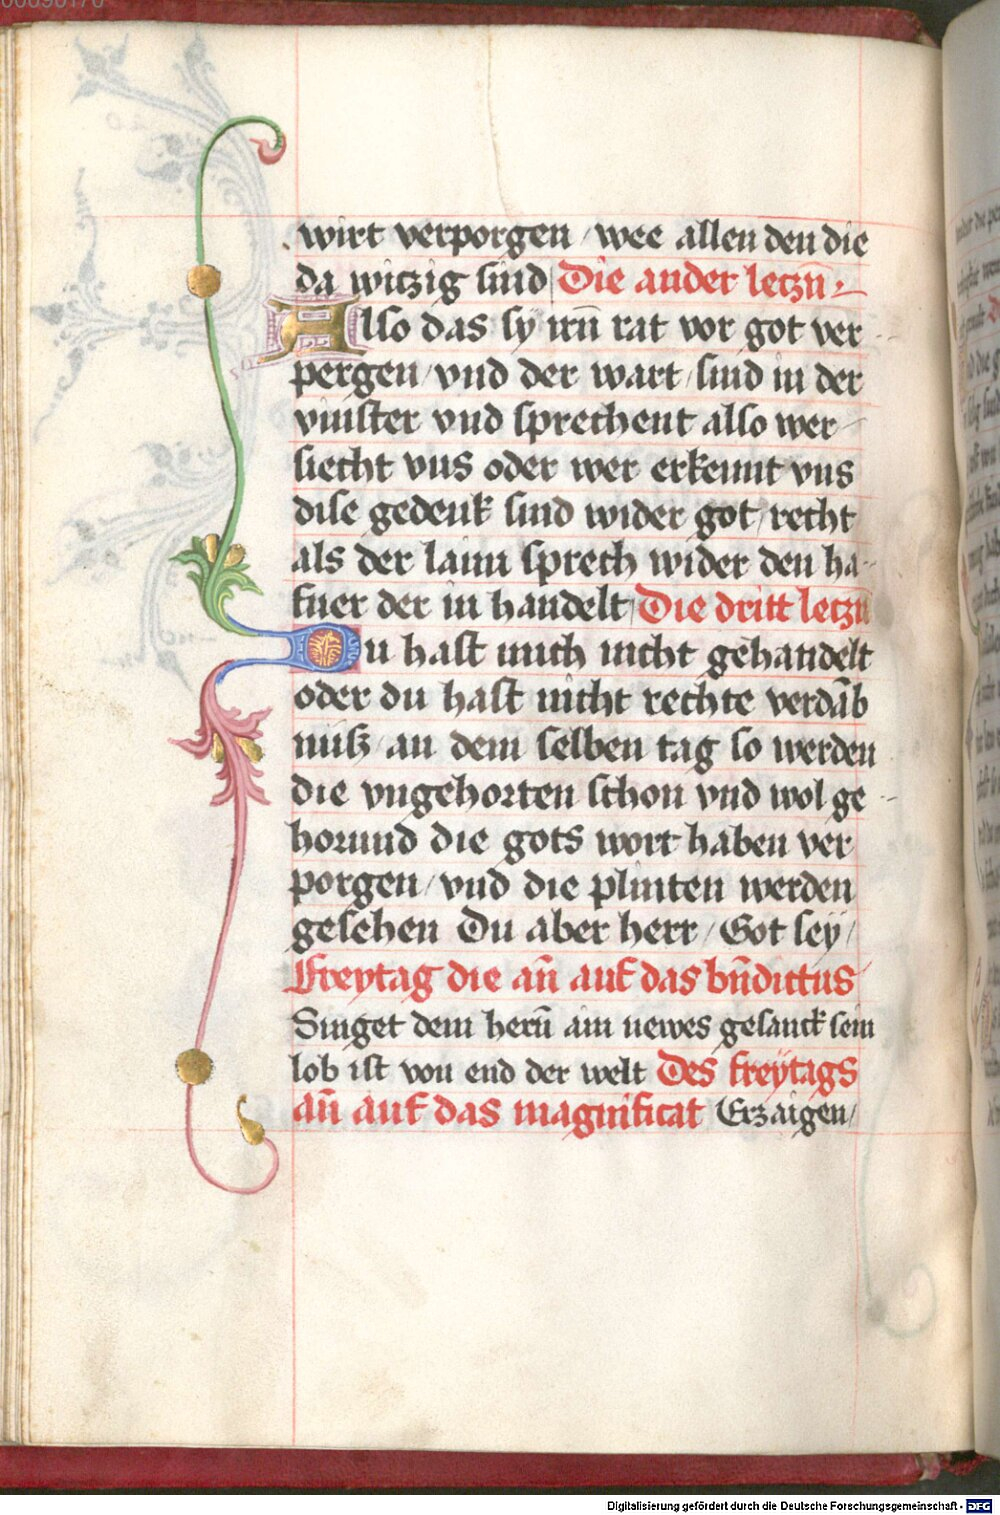 wirt verporgen / wee allen den die
da witzig sind Die ander letzn̄
Also das sy irn̄ rat vor got ver
pergen / vnd der wart / sind in der
vinster vnd sprechent also wer
siecht vns oder wer erkennt vns
dise gedenk sind wider got / recht
als der laim sprech wider den ha-
fner der in handelt / Die dritt letzn
Du hast mich nicht gehandelt
oder du hast nicht rechte verdāb
nuß / an dem selben tag so werden
die vngehorten schon vnd wol ge
horund die gots wort haben ver
porgen / vnd die plinten werden
gesehen Du aber herr / Got sey /
Freytag die an̄ auf das bn̄dictus
Singet dem hern̄ ain newes gesanck sein
lob ist von end der welt Des freÿtags
an̄ auf das magnificat Erzaigen /
Digitalisierung gefördert durch die Deutsche Forschungsgemeinschaft - DFG